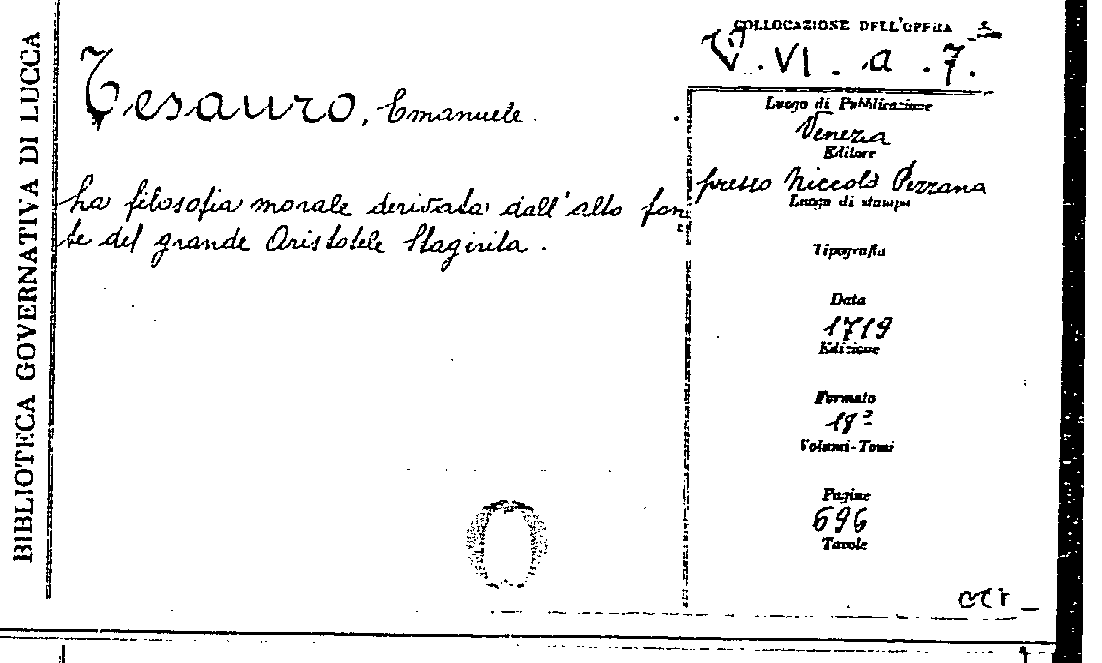 BIBLIOTECA GOVERNATIVA DI LUCCA
COLLOCAZIONE DELL'OPERA
V. VI. a. 7.
Tesauro, Emanuele.
La filosofia morale derivata dall'alto fon-
te del grande Aristotele Stagirita.
Luogo di Pubblicazione
Venezia
Editore
presso Niccolò Pezzana
Luogo di stampa
Tipografia
Data
1719
Edizione
Formato
18º
Volumi-Tomi
Pagine
696
Tavole